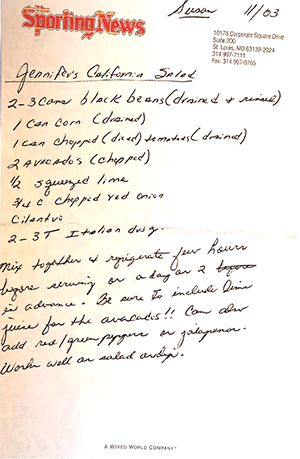 The
Sporting News
Susan 11/03
10176 Corporate Square Drive
Suite 200
St. Louis, MO 63132-2924
314 997-7111
Fax: 314 997-0765
Jennifer's California Salad
2-3 cans black beans (drained + rinsed)
1 can corn (drained)
1 can chopped (diced) tomatoes (drained)
2 avocados (chopped)
1/2 squeezed lime
3/4 c chopped red onion
Cilantro
2-3 T Italian dssg.
Mix together & refrigerate few hours
before serving or a day or 2 before
in advance. Be sure to include lime
juice for the avocados!! Can also
add red/green peppers or jalapenos.
Works well as salad or dip.
A WIRED WORLD COMPANY